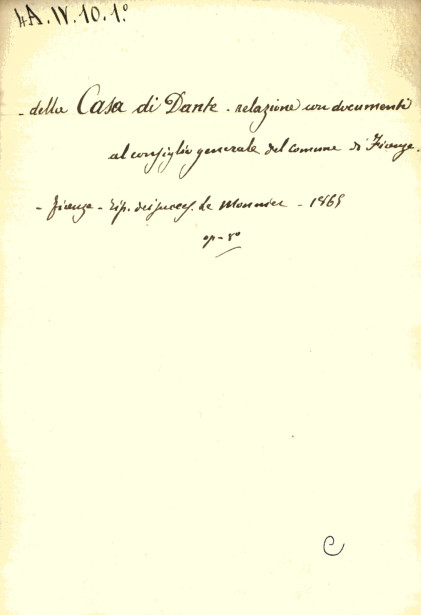 4A.IV.10.1.º
- della Casa di Dante - relazione con documenti
al consiglio generale del comune di Firenze.
- Firenze - Tip. dei success. Le Monnier - 1865
op - 8º
C